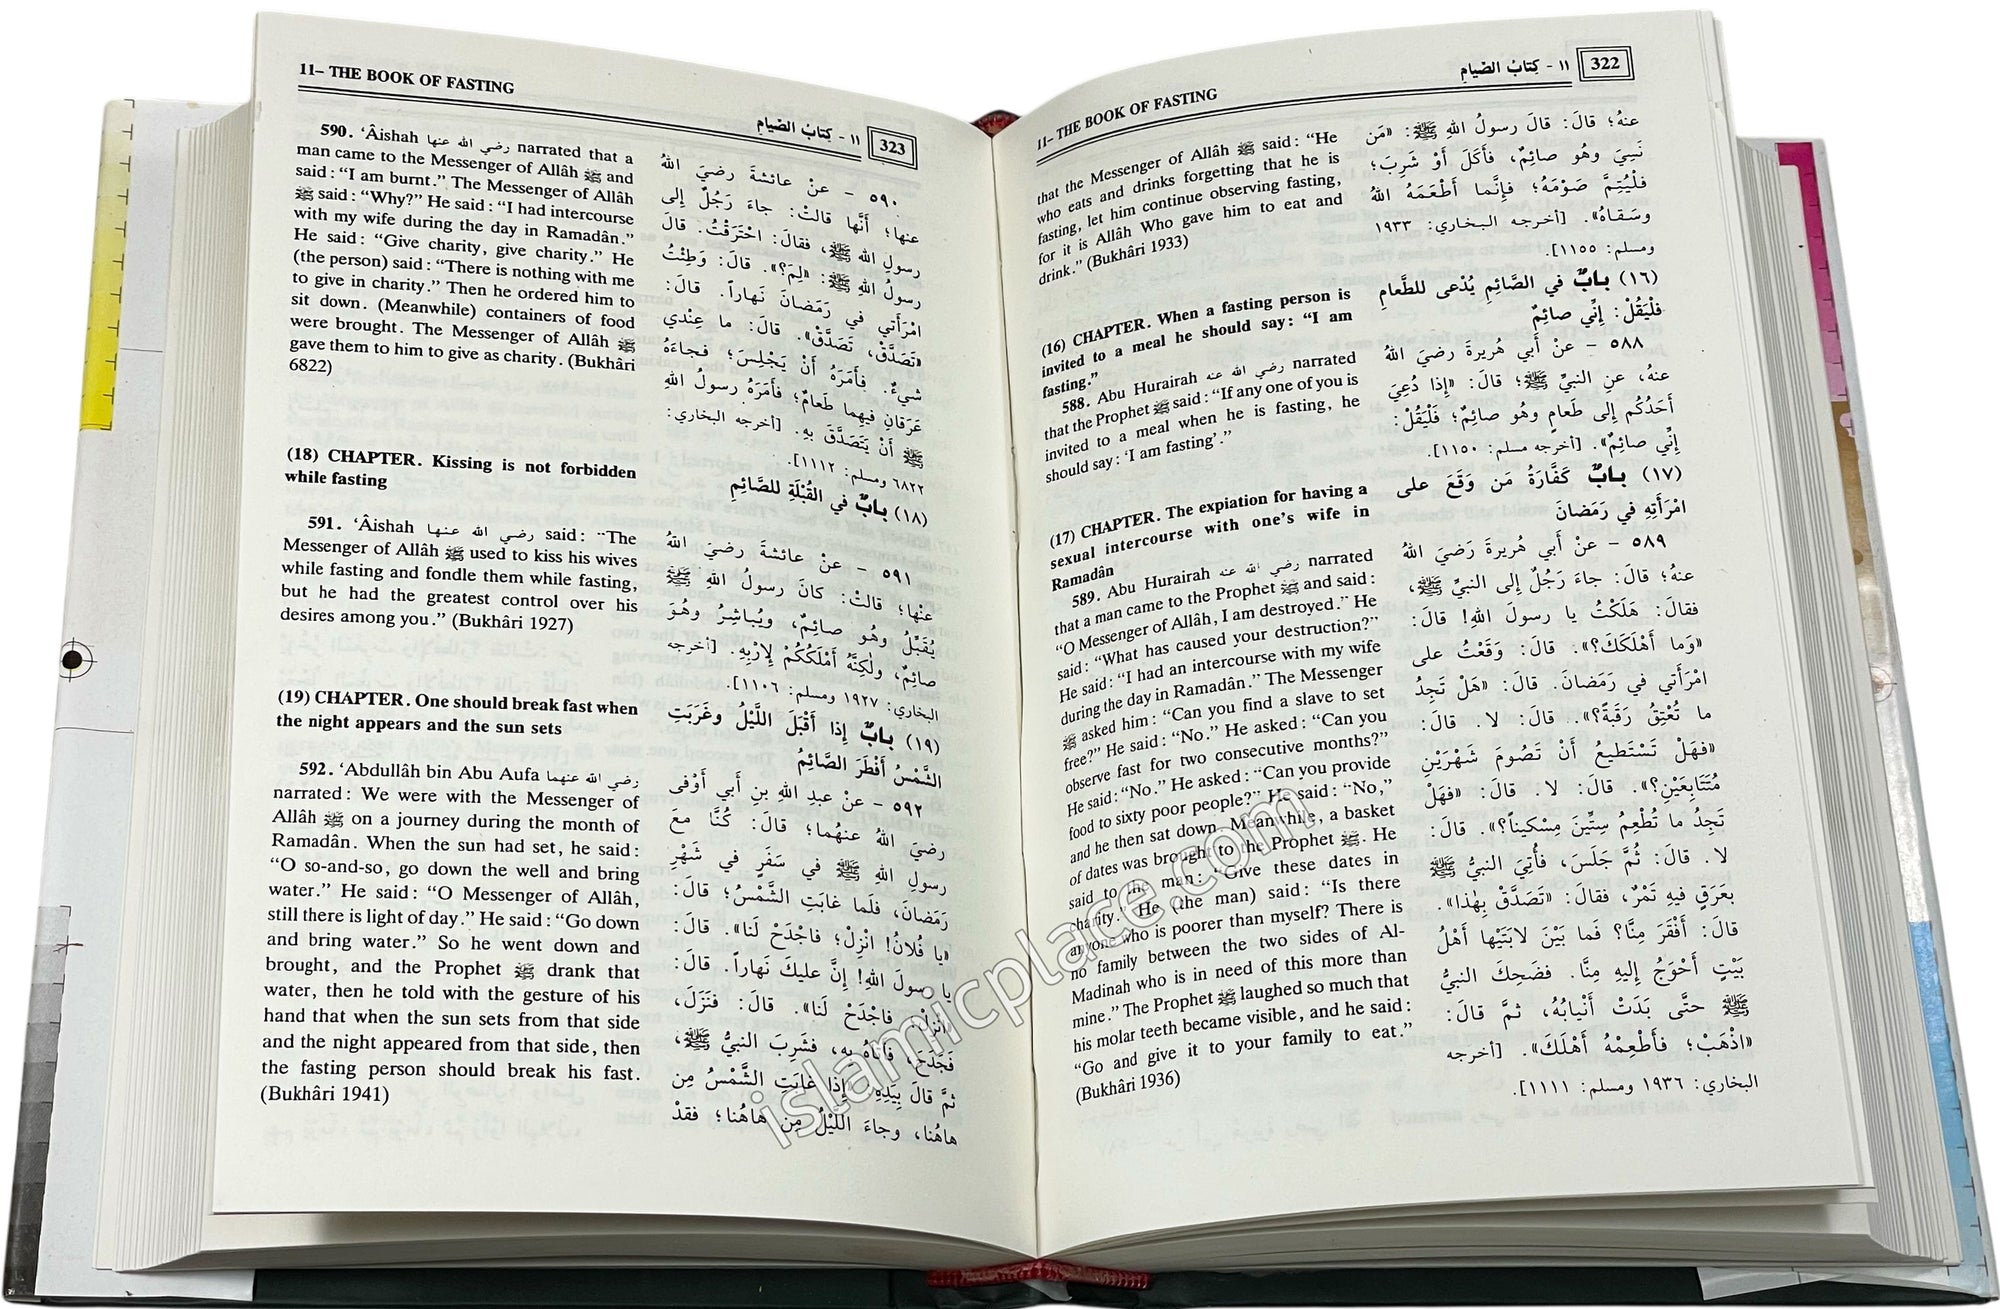 11– THE BOOK OF FASTING
١١ - كِتابُ الصِّيامِ
322
that the Messenger of Allâh ﷺ said: “He
who eats and drinks forgetting that he is
fasting, let him continue observing fasting,
for it is Allâh Who gave him to eat and
drink.” (Bukhâri 1933)
(16) CHAPTER. When a fasting person is
invited to a meal he should say: “I am
fasting.”
588. Abu Hurairah رضي الله عنه narrated
that the Prophet ﷺ said: “If any one of you is
invited to a meal when he is fasting, he
should say: ‘I am fasting’.”
(17) CHAPTER. The expiation for having a
sexual intercourse with one’s wife in
Ramadân
589. Abu Hurairah رضي الله عنه narrated
that a man came to the Prophet ﷺ and said:
“O Messenger of Allâh, I am destroyed.” He
said: “What has caused your destruction?”
He said: “I had an intercourse with my wife
during the day in Ramadân.” The Messenger
ﷺ asked him: “Can you find a slave to set
free?” He said: “No.” He asked: “Can you
observe fast for two consecutive months?”
He said: “No.” He asked: “Can you provide
food to sixty poor people?” He said: “No,”
and he then sat down. Meanwhile, a basket
of dates was brought to the Prophet ﷺ. He
said to the man: “Give these dates in
charity.” He (the man) said: “Is there
anyone who is poorer than myself? There is
no family between the two sides of Al-
Madinah who is in need of this more than
mine.” The Prophet ﷺ laughed so much that
his molar teeth became visible, and he said:
“Go and give it to your family to eat.”
(Bukhâri 1936)
عنهُ؛ قالَ: قالَ رسولُ اللهِ ﷺ: «مَن
نَسِيَ وهُو صائِمٌ، فَأَكَلَ أَوْ شَرِبَ؛
فَلْيُتِمَّ صَوْمَهُ؛ فإِنَّما أَطْعَمَهُ اللهُ
وسَقاهُ». [أخرجه البخاري: ١٩٣٣
ومسلم: ١١٥٥].
(١٦) بابٌ في الصَّائِمِ يُدْعى للطَّعامِ
فلْيَقُلْ: إِنِّي صائِمٌ
٥٨٨ - عنْ أَبي هُريرةَ رَضيَ اللهُ
عنهُ، عنِ النبيِّ ﷺ؛ قالَ: «إِذا دُعِيَ
أَحَدُكُم إلى طَعامٍ وهُو صائِمٌ؛ فَلْيَقُلْ:
إِنِّي صائِمٌ». [أخرجه مسلم: ١١٥٠].
(١٧) بابٌ كَفَّارَةُ مَن وَقَعَ على
امْرَأَتِهِ في رَمَضانَ
٥٨٩ - عن أَبي هُريرةَ رَضيَ اللهُ
عنهُ؛ قالَ: جاءَ رَجُلٌ إلى النبيِّ ﷺ،
فقالَ: هَلَكْتُ يا رسولَ اللهِ! قالَ:
«وَما أَهْلَكَكَ؟». قالَ: وَقَعْتُ على
امْرَأَتي في رَمَضانَ. قالَ: «هَلْ تَجِدُ
ما تُعْتِقُ رَقَبَةً؟». قالَ: لا. قالَ:
«فهَلْ تَسْتَطيعُ أَنْ تَصُومَ شَهْرَيْنِ
مُتَتابِعَيْنِ؟». قالَ: لا. قالَ: «فهَلْ
تَجِدُ ما تُطْعِمُ سِتِّينَ مِسْكيناً؟». قالَ:
لا. قالَ: ثُمَّ جَلَسَ، فأُتِيَ النبيُّ ﷺ
بعَرَقٍ فيهِ تَمْرٌ، فقالَ: «تَصَدَّقْ بِهٰذا».
قالَ: أَفْقَرَ مِنَّا؟ فَما بَيْنَ لابَتَيْها أَهْلُ
بَيْتٍ أَحْوَجُ إِليهِ مِنَّا. فضَحِكَ النبيُّ
ﷺ حتَّى بَدَتْ أَنْيابُهُ، ثمَّ قالَ:
«اذْهَبْ؛ فأَطْعِمْهُ أَهْلَكَ». [أخرجه
البخاري: ١٩٣٦ ومسلم: ١١١١].
11– THE BOOK OF FASTING
١١ - كِتابُ الصِّيامِ
323
590. ‘Âishah رضي الله عنها narrated that a
man came to the Messenger of Allâh ﷺ and
said: “I am burnt.” The Messenger of Allâh
ﷺ said: “Why?” He said: “I had intercourse
with my wife during the day in Ramadân.”
He said: “Give charity, give charity.” He
(the person) said: “There is nothing with me
to give in charity.” Then he ordered him to
sit down. (Meanwhile) containers of food
were brought. The Messenger of Allâh ﷺ
gave them to him to give as charity. (Bukhâri
6822)
(18) CHAPTER. Kissing is not forbidden
while fasting
591. ‘Âishah رضي الله عنها said: “The
Messenger of Allâh ﷺ used to kiss his wives
while fasting and fondle them while fasting,
but he had the greatest control over his
desires among you.” (Bukhâri 1927)
(19) CHAPTER. One should break fast when
the night appears and the sun sets
592. ‘Abdullâh bin Abu Aufa رضي الله عنهما
narrated: We were with the Messenger of
Allâh ﷺ on a journey during the month of
Ramadân. When the sun had set, he said:
“O so-and-so, go down the well and bring
water.” He said: “O Messenger of Allâh,
still there is light of day.” He said: “Go down
and bring water.” So he went down and
brought, and the Prophet ﷺ drank that
water, then he told with the gesture of his
hand that when the sun sets from that side
and the night appeared from that side, then
the fasting person should break his fast.
(Bukhâri 1941)
٥٩٠ - عنْ عائشةَ رضيَ اللهُ
عنها؛ أَنَّها قالتْ: جاءَ رَجُلٌ إلى
رسولِ اللهِ ﷺ، فقالَ: احْتَرَقْتُ. قالَ
رسولُ اللهِ ﷺ: «لِمَ؟». قالَ: وَطِئْتُ
امْرَأَتي في رَمَضانَ نَهاراً. قالَ:
«تَصَدَّقْ، تَصَدَّقْ». قالَ: ما عِنْدي
شيءٌ. فأَمَرَهُ أَنْ يَجْلِسَ؛ فجاءَهُ
عَرَقانِ فيهِما طَعامٌ؛ فأَمَرَهُ رسولُ اللهِ
ﷺ أَنْ يَتَصَدَّقَ بهِ. [أخرجه البخاري:
٦٨٢٢ ومسلم: ١١١٢].
(١٨) بابٌ في القُبْلَةِ للصَّائِمِ
٥٩١ - عنْ عائشةَ رَضيَ اللهُ
عنْها؛ قالتْ: كانَ رسولُ اللهِ ﷺ
يُقَبِّلُ وهُو صائِمٌ، ويُباشِرُ وهُوَ
صائِمٌ، ولٰكِنَّهُ أَمْلَكُكُمْ لِإِرْبِهِ. [أخرجه
البخاري: ١٩٢٧ ومسلم: ١١٠٦].
(١٩) بابٌ إِذا أَقْبَلَ اللَّيْلُ وغَرَبَتِ
الشَّمْسُ أَفْطَرَ الصَّائِمُ
٥٩٢ - عنْ عبدِ اللهِ بنِ أَبي أَوْفى
رضيَ اللهُ عنهُما؛ قالَ: كُنَّا معَ
رسولِ اللهِ ﷺ في سَفَرٍ في شَهْرِ
رَمَضانَ، فلَما غابَتِ الشَّمْسُ؛ قالَ:
«يا فُلانُ! انْزِلْ؛ فاجْدَحْ لَنا». قالَ:
يا رسولَ اللهِ! إِنَّ عليكَ نَهاراً. قالَ:
«انْزِلْ؛ فاجْدَحْ لَنا». قالَ: فنَزَلَ،
فجَدَحَ، فأَتاهُ بهِ، فشَرِبَ النبيُّ ﷺ،
ثمَّ قالَ بيَدِهِ: «إِذا غابَتِ الشَّمْسُ مِن
هاهُنا، وجاءَ اللَّيْلُ مِن هاهُنا؛ فقدْ
islamicplace.com